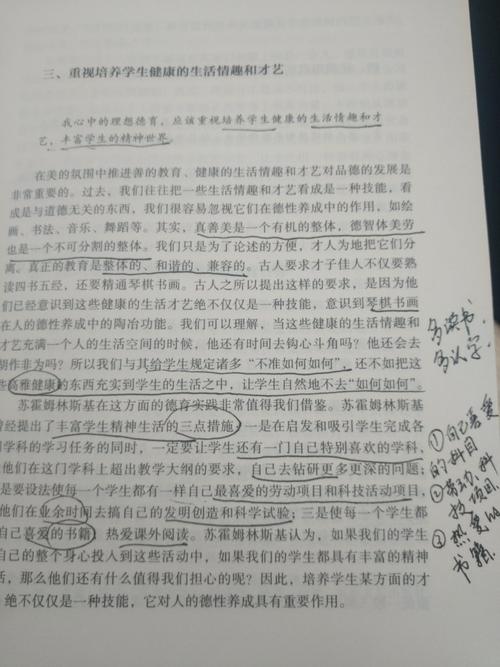 三、重视培养学生健康的生活情趣和才艺
我心中的理想德育，应该重视培养学生健康的生活情趣和才
艺，丰富学生的精神世界。
在美的氛围中推进善的教育、健康的生活情趣和才艺对品德的发展是
非常重要的。过去，我们往往把一些生活情趣和才艺看成是一种技能，看
成是与道德无关的东西，我们很容易忽视它们在德性养成中的作用，如绘
画、书法、音乐、舞蹈等。其实，真善美是一个有机的整体，德智体美劳
也是一个不可分割的整体。我们只是为了论述的方便，才人为地把它们分
离。真正的教育是整体的、和谐的、兼容的。古人要求才子佳人不仅要熟
读四书五经，还要精通琴棋书画。古人之所以提出这样的要求，是因为他
们已经意识到这些健康的生活才艺绝不仅仅是一种技能，意识到琴棋书画
在人的德性养成中的陶冶功能。我们可以理解，当这些健康的生活情趣和
才艺充满一个人的生活空间的时候，他还有时间去钩心斗角吗？他还会去
胡作非为吗？所以我们与其给学生规定诸多“不准如何如何”，还不如把这
些高雅健康的东西充实到学生的生活之中，让学生自然地不去“如何如何”。
苏霍姆林斯基在这方面的德育实践非常值得我们借鉴。苏霍姆林斯基
曾经提出了丰富学生精神生活的三点措施：一是在启发和吸引学生完成各
学科的学习任务的同时，一定要让学生还有一门自己特别喜欢的学科，
他们在这门学科上超出教学大纲的要求，自己去钻研更多更深的问题；
是要设法使每一个学生都有一样自己最喜爱的劳动项目和科技活动项目，
他们在业余时间去搞自己的发明创造和科学试验；三是使每一个学生都
自己喜爱的书籍，热爱课外阅读。苏霍姆林斯基认为，如果我们的学生
自己的整个身心投入到这些活动中，如果我们的学生都具有丰富的精神
活，那么他们还有什么值得我们担心的呢？因此，培养学生某方面的才
绝不仅仅是一种技能，它对人的德性养成具有重要作用。
多读书
多认字.
①自己喜爱
的科目
②劳动、
技项目.
③热爱的
书籍.